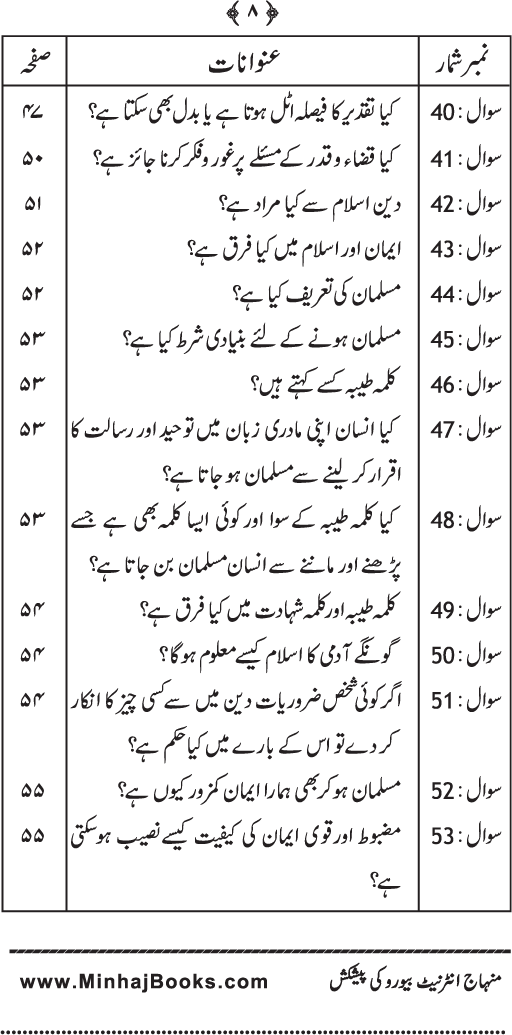 ﴿ ۸ ﴾
نمبر شمار عنوانات صفحہ
سوال : 40 کیا تقدیر کا فیصلہ اٹل ہوتا ہے یا بدل بھی سکتا ہے؟ ۴۷
سوال : 41 کیا قضاء و قدر کے مسئلے پر غور و فکر کرنا جائز ہے؟ ۵۰
سوال : 42 دین اسلام سے کیا مراد ہے؟ ۵۱
سوال : 43 ایمان اور اسلام میں کیا فرق ہے؟ ۵۲
سوال : 44 مسلمان کی تعریف کیا ہے؟ ۵۲
سوال : 45 مسلمان ہونے کے لئے بنیادی شرط کیا ہے؟ ۵۳
سوال : 46 کلمہ طیبہ کسے کہتے ہیں؟ ۵۳
سوال : 47 کیا انسان اپنی مادری زبان میں توحید اور رسالت کا ۵۳
اقرار کر لینے سے مسلمان ہو جاتا ہے؟
سوال : 48 کیا کلمہ طیبہ کے سوا اور کوئی ایسا کلمہ بھی ہے جسے ۵۳
پڑھنے اور ماننے سے انسان مسلمان بن جاتا ہے؟
سوال : 49 کلمہ طیبہ اور کلمہ شہادت میں کیا فرق ہے؟ ۵۴
سوال : 50 گونگے آدمی کا اسلام کیسے معلوم ہوگا؟ ۵۴
سوال : 51 اگر کوئی شخص ضروریات دین میں سے کسی چیز کا انکار ۵۴
کر دے تو اس کے بارے میں کیا حکم ہے؟
سوال : 52 مسلمان ہو کر بھی ہمارا ایمان کمزور کیوں ہے؟ ۵۵
سوال : 53 مضبوط اور قوی ایمان کی کیفیت کیسے نصیب ہوسکتی ۵۵
ہے؟
منہاج انٹرنیٹ بیورو کی پیشکش www.MinhajBooks.com